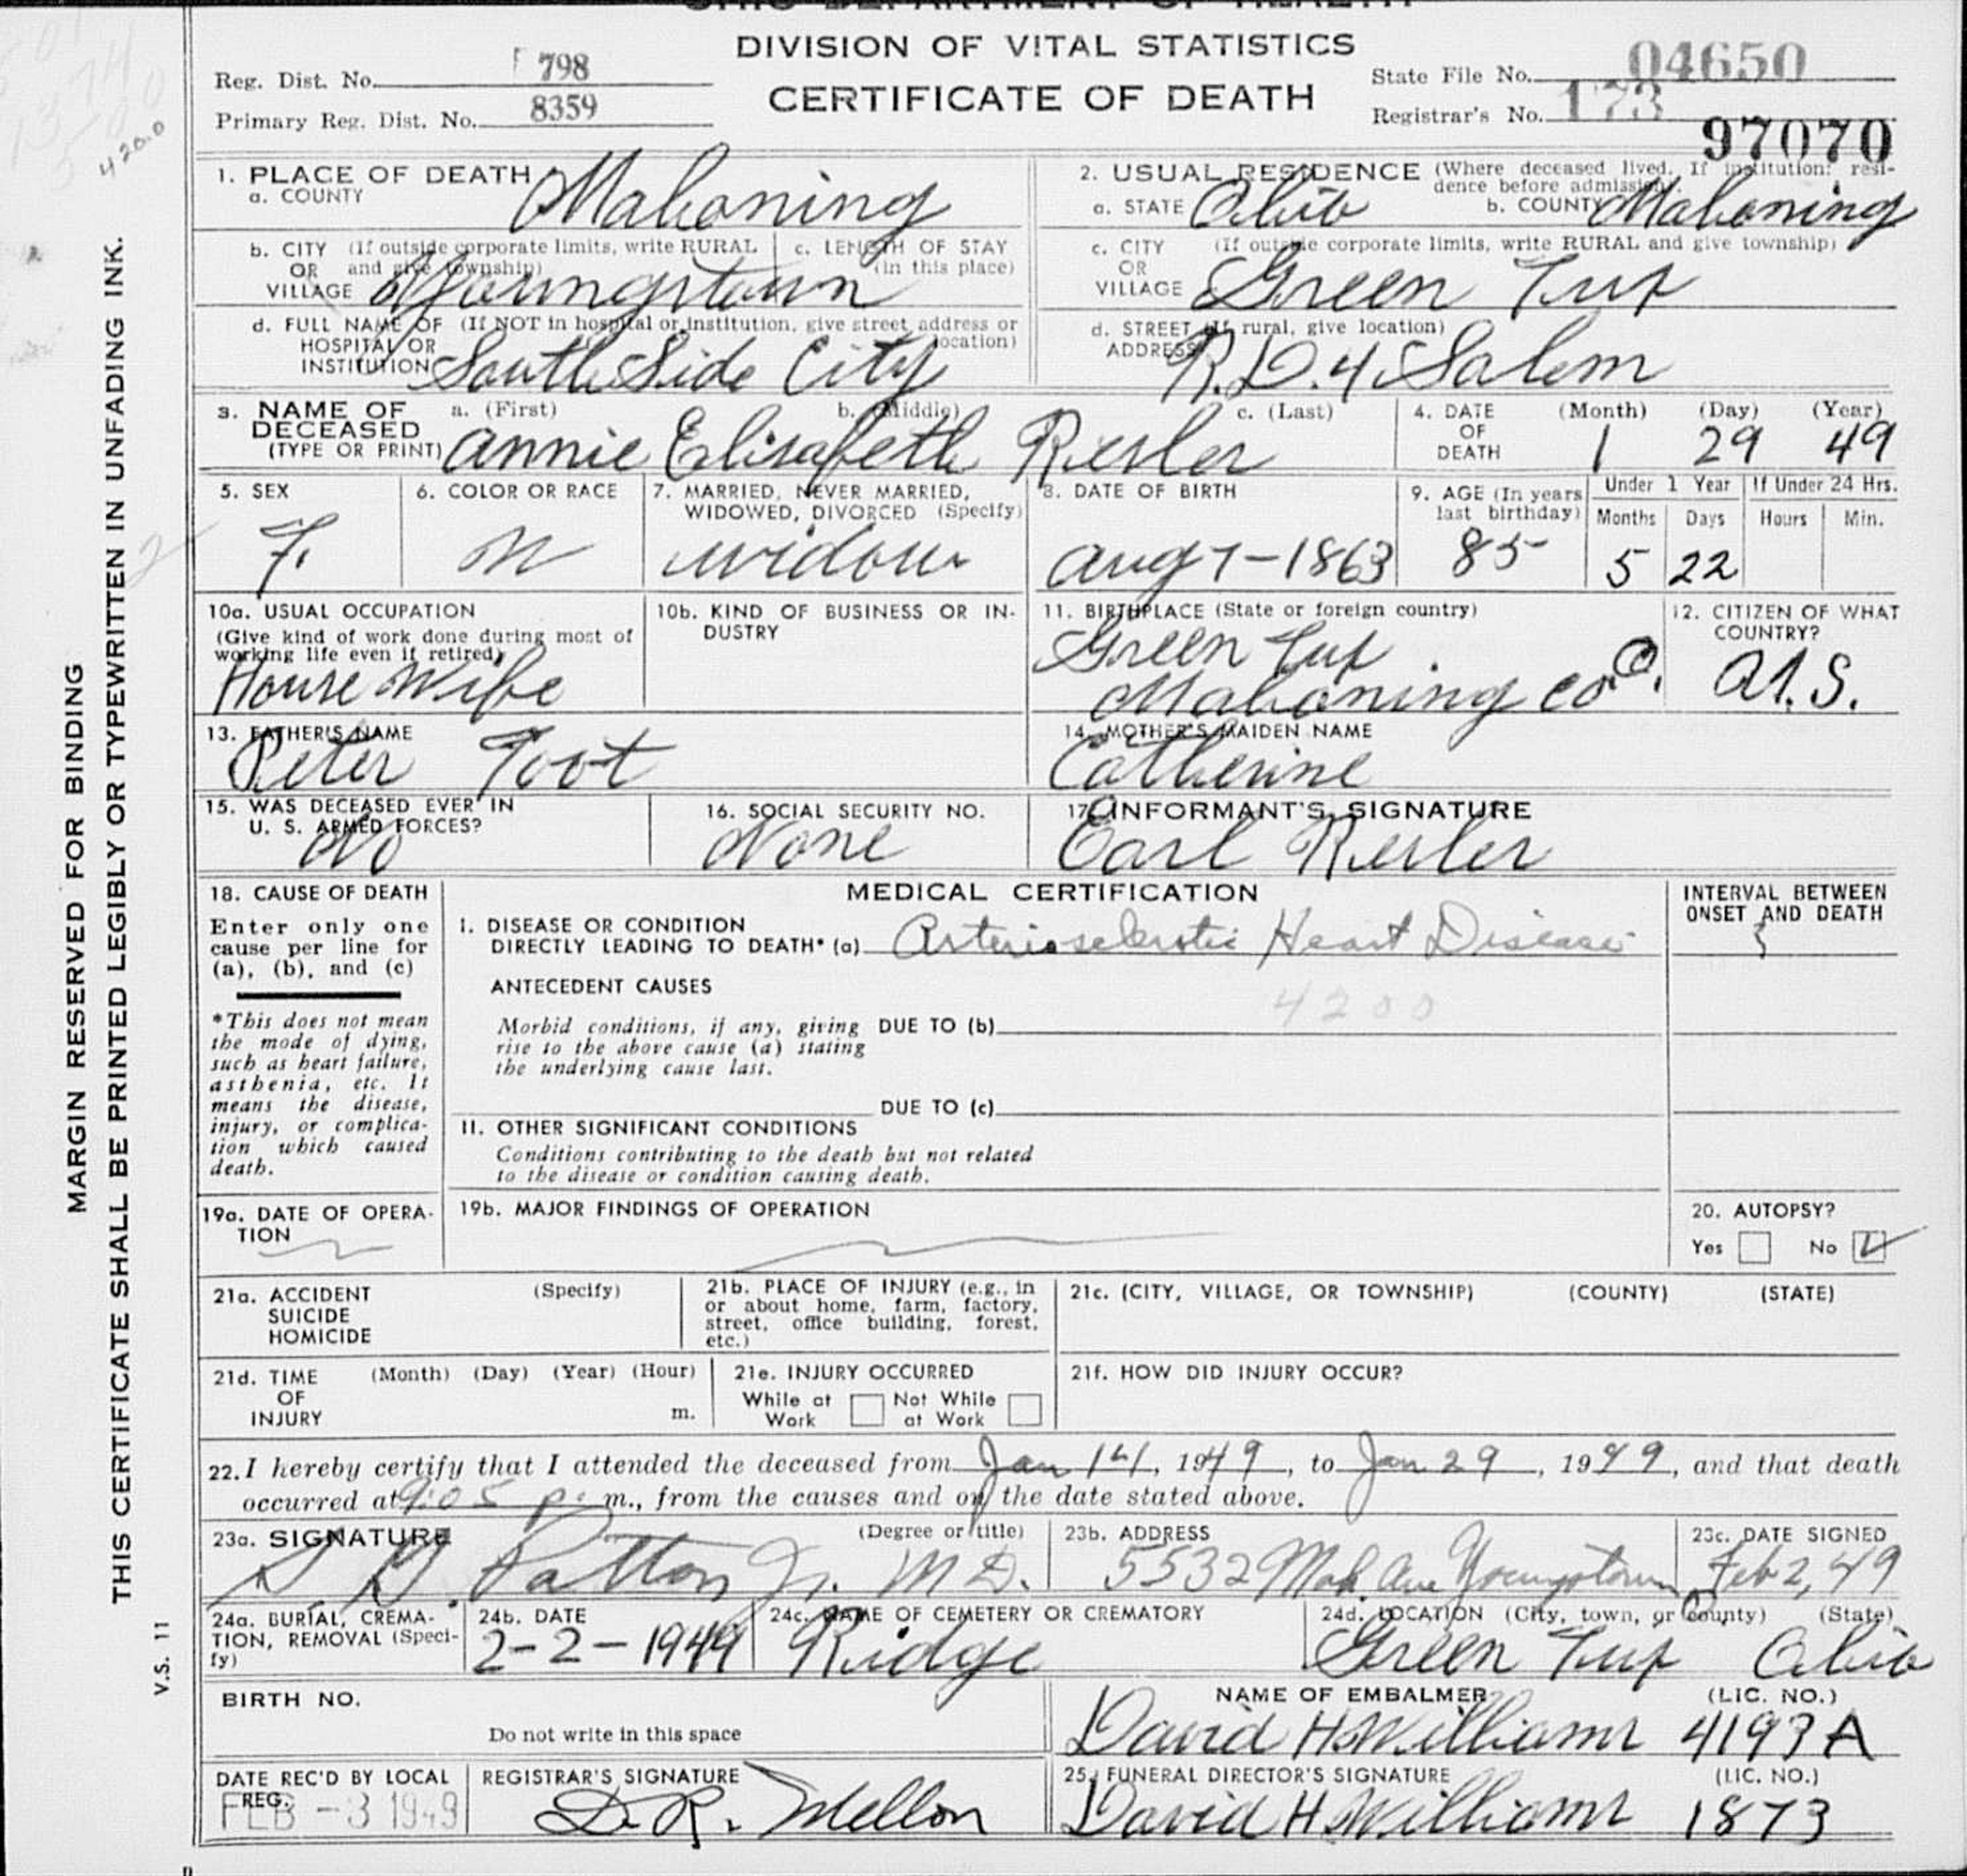 OHIO DEPARTMENT OF HEALTH
DIVISION OF VITAL STATISTICS
CERTIFICATE OF DEATH
Reg. Dist. No. 798
Primary Reg. Dist. No. 8359
State File No. 04650
Registrar's No. 173
97070
1. PLACE OF DEATH
a. COUNTY Mahoning
2. USUAL RESIDENCE (Where deceased lived. If institution: resi-
dence before admission).
a. STATE Ohio b. COUNTY Mahoning
b. CITY (If outside corporate limits, write RURAL
OR and give township)
VILLAGE Youngstown
c. LENGTH OF STAY
(in this place)
c. CITY (If outside corporate limits, write RURAL and give township)
OR
VILLAGE Green Twp
d. FULL NAME OF (If NOT in hospital or institution, give street address or
HOSPITAL OR location)
INSTITUTION South Side City
d. STREET (If rural, give location)
ADDRESS R.D.4 Salem
3. NAME OF a. (First) b. (Middle) c. (Last)
DECEASED
(TYPE OR PRINT) Annie Elisabeth Riesler
4. DATE (Month) (Day) (Year)
OF
DEATH 1 29 49
5. SEX
F.
6. COLOR OR RACE
W
7. MARRIED, NEVER MARRIED,
WIDOWED, DIVORCED (Specify)
widow
8. DATE OF BIRTH
Aug 7-1863
9. AGE (In years
last birthday)
85
Under 1 Year If Under 24 Hrs.
Months Days Hours Min.
5 22
10a. USUAL OCCUPATION
(Give kind of work done during most of
working life even if retired)
House Wife
10b. KIND OF BUSINESS OR IN-
DUSTRY
11. BIRTHPLACE (State or foreign country)
Green Twp
Mahoning Co. O.
12. CITIZEN OF WHAT
COUNTRY?
U.S.
13. FATHER'S NAME
Peter Toot
14. MOTHER'S MAIDEN NAME
Catherine
15. WAS DECEASED EVER IN
U. S. ARMED FORCES?
No
16. SOCIAL SECURITY NO.
None
17. INFORMANT'S SIGNATURE
Earl Riesler
18. CAUSE OF DEATH
Enter only one
cause per line for
(a), (b), and (c)
*This does not mean
the mode of dying,
such as heart failure,
asthenia, etc. It
means the disease,
injury, or complica-
tion which caused
death.
MEDICAL CERTIFICATION
I. DISEASE OR CONDITION
DIRECTLY LEADING TO DEATH* (a) Arteriosclerotic Heart Disease
ANTECEDENT CAUSES
4200
Morbid conditions, if any, giving DUE TO (b)
rise to the above cause (a) stating
the underlying cause last.
DUE TO (c)
II. OTHER SIGNIFICANT CONDITIONS
Conditions contributing to the death but not related
to the disease or condition causing death.
INTERVAL BETWEEN
ONSET AND DEATH
19a. DATE OF OPERA-
TION
19b. MAJOR FINDINGS OF OPERATION
20. AUTOPSY?
Yes No
21a. ACCIDENT (Specify)
SUICIDE
HOMICIDE
21b. PLACE OF INJURY (e.g., in
or about home, farm, factory,
street, office building, forest,
etc.)
21c. (CITY, VILLAGE, OR TOWNSHIP) (COUNTY) (STATE)
21d. TIME (Month) (Day) (Year) (Hour)
OF
INJURY m.
21e. INJURY OCCURRED
While at Not While
Work at Work
21f. HOW DID INJURY OCCUR?
22. I hereby certify that I attended the deceased from Jan 14, 1949, to Jan 29, 1949, and that death
occurred at 9:05 p. m., from the causes and on the date stated above.
23a. SIGNATURE (Degree or title)
Patton Jr. M D.
23b. ADDRESS
5532 Mah. Ave Youngstown
23c. DATE SIGNED
Feb 2, 49
24a. BURIAL, CREMA-
TION, REMOVAL (Speci-
fy)
24b. DATE
2-2-1949
24c. NAME OF CEMETERY OR CREMATORY
Ridge
24d. LOCATION (City, town, or County) (State)
Green Twp Ohio
BIRTH NO.
Do not write in this space
NAME OF EMBALMER (LIC. NO.)
David H Williams 4193A
DATE REC'D BY LOCAL
REG.
FEB -3 1949
REGISTRAR'S SIGNATURE
D. R. Mellon
25. FUNERAL DIRECTOR'S SIGNATURE (LIC. NO.)
David H Williams 1873
MARGIN RESERVED FOR BINDING
THIS CERTIFICATE SHALL BE PRINTED LEGIBLY OR TYPEWRITTEN IN UNFADING INK.
V.S. 11
4200